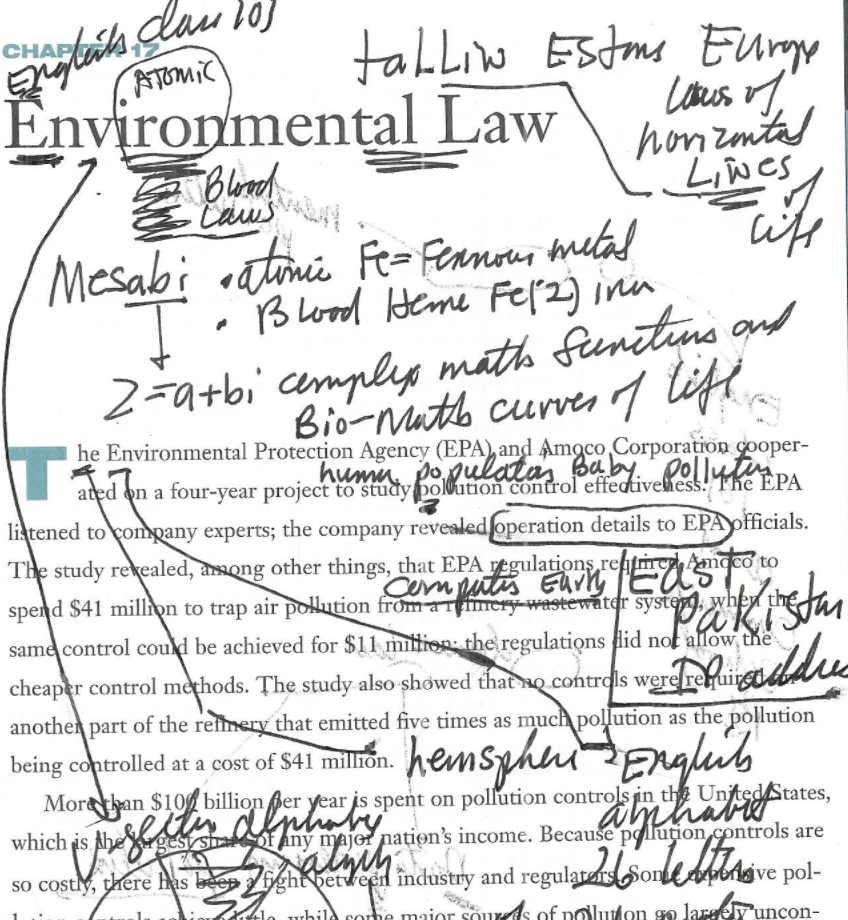 English class 101
CHAPTER 17
ATOMIC
talliN EStons EUrope
Environmental Law
Laws of
horizontal
LiNES
of
Life
Blood
Laws
Mesabi • atomic Fe = Ferrous metal
• Blood Heme Fe(2) iron
Z = a + bi complex math functions and
Bio-Math curves of Life
The Environmental Protection Agency (EPA) and Amoco Corporation cooper-
human populatas Baby pollution
ated on a four-year project to study pollution control effectiveness. The EPA
listened to company experts; the company revealed operation details to EPA officials.
The study revealed, among other things, that EPA regulations required Amoco to
computer Earth EAST
spend $41 million to trap air pollution from a refinery wastewater system, when the
PakiStan
same control could be achieved for $11 million; the regulations did not allow the
IP address
cheaper control methods. The study also showed that no controls were required
another part of the refinery that emitted five times as much pollution as the pollution
being controlled at a cost of $41 million.
hemsphere English
More than $100 billion per year is spent on pollution controls in the United States,
alphabet
which is the largest share of any major nation's income. Because pollution controls are
26 letters
so costly, there has been a fight between industry and regulators. Some expensive pol-
lution controls achieve little, while some major sources of pollution go largely uncon-